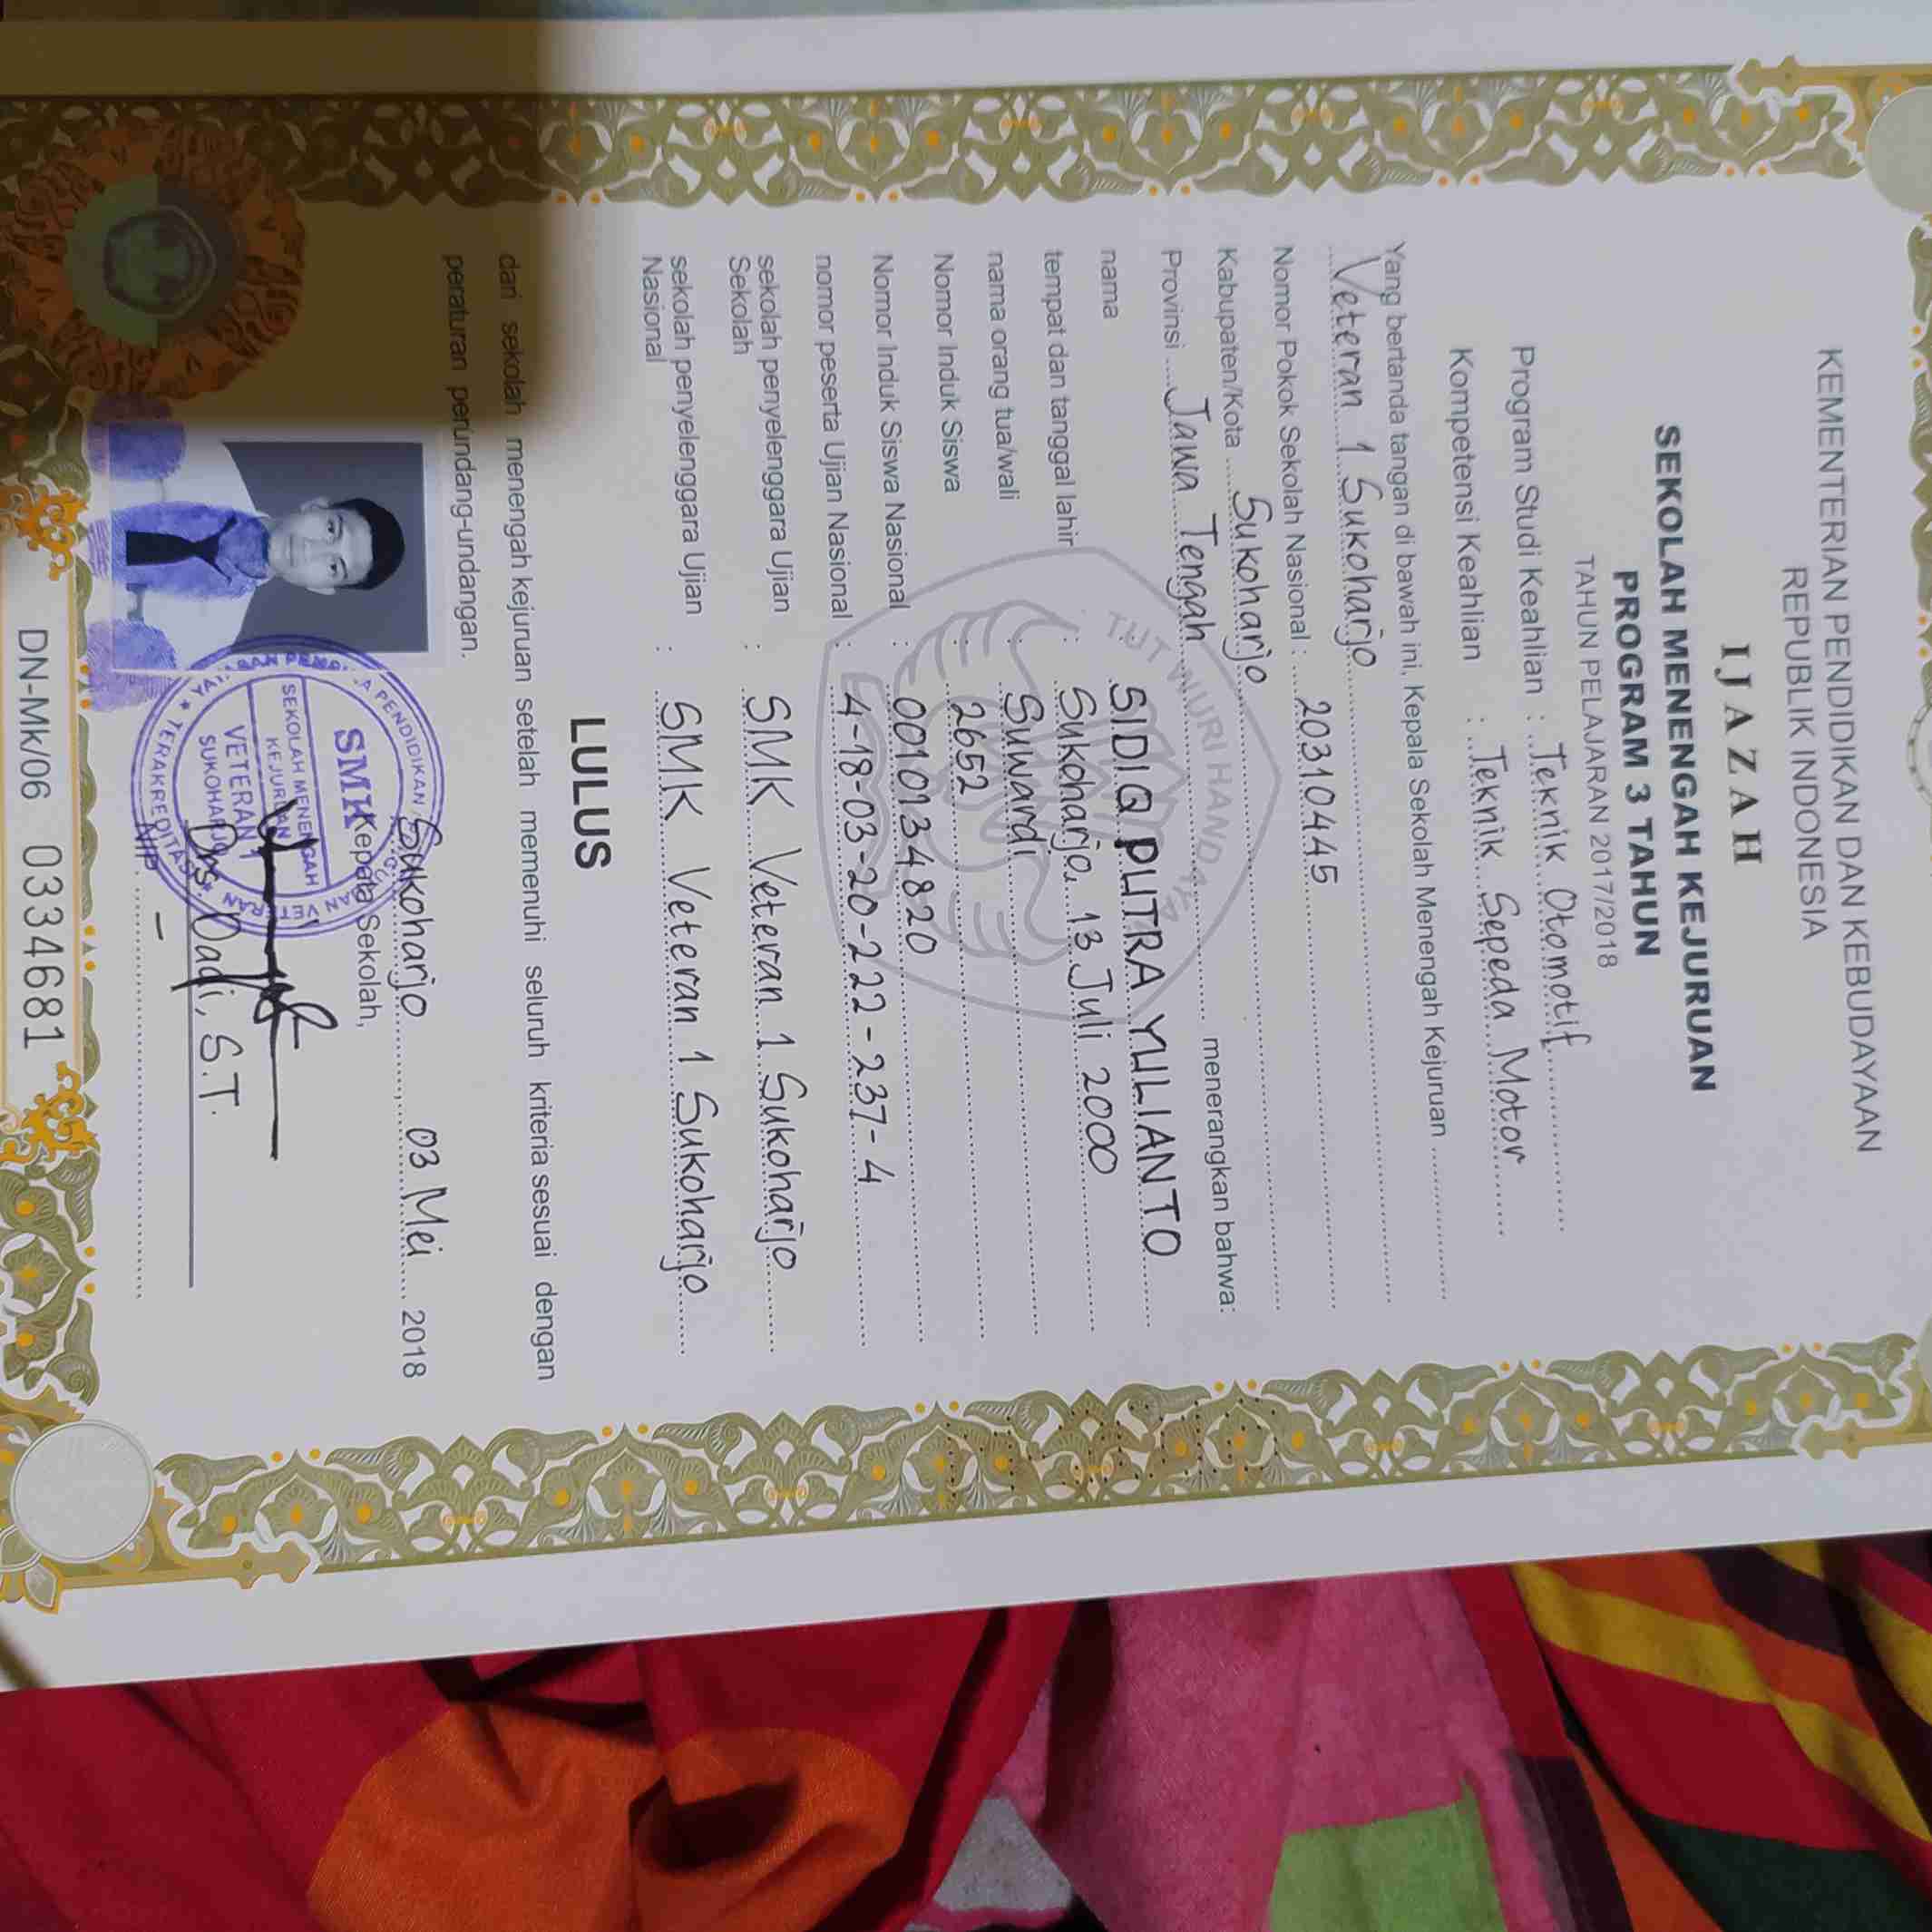 KEMENTERIAN PENDIDIKAN DAN KEBUDAYAAN
REPUBLIK INDONESIA
IJAZAH
SEKOLAH MENENGAH KEJURUAN
PROGRAM 3 TAHUN
TAHUN PELAJARAN 2017/2018
Program Studi Keahlian : Teknik Otomotif
Kompetensi Keahlian : Teknik Sepeda Motor
Yang bertanda tangan di bawah ini, Kepala Sekolah Menengah Kejuruan
Veteran 1 Sukoharjo
Nomor Pokok Sekolah Nasional : 20310445
Kabupaten/Kota Sukoharjo
Provinsi Jawa Tengah menerangkan bahwa:
nama SIDIQ PUTRA YULIANTO
tempat dan tanggal lahir : Sukoharjo, 13 Juli 2000
nama orang tua/wali : Suwardi
Nomor Induk Siswa : 2652
Nomor Induk Siswa Nasional : 0010134820
nomor peserta Ujian Nasional : 4-18-03-20-222-237-4
sekolah penyelenggara Ujian : SMK Veteran 1 Sukoharjo
Sekolah
sekolah penyelenggara Ujian : SMK Veteran 1 Sukoharjo
Nasional
LULUS
dari sekolah menengah kejuruan setelah memenuhi seluruh kriteria sesuai dengan
peraturan perundang-undangan.
Sukoharjo, 03 Mei 2018
Kepala Sekolah,
Drs. Dadi, S.T.
NIP. -
DN-Mk/06 0334681
TUT WURI HANDAYANI
SMK
SEKOLAH MENENGAH
KEJURUAN
VETERAN 1
SUKOHARJO
TERAKREDITASI